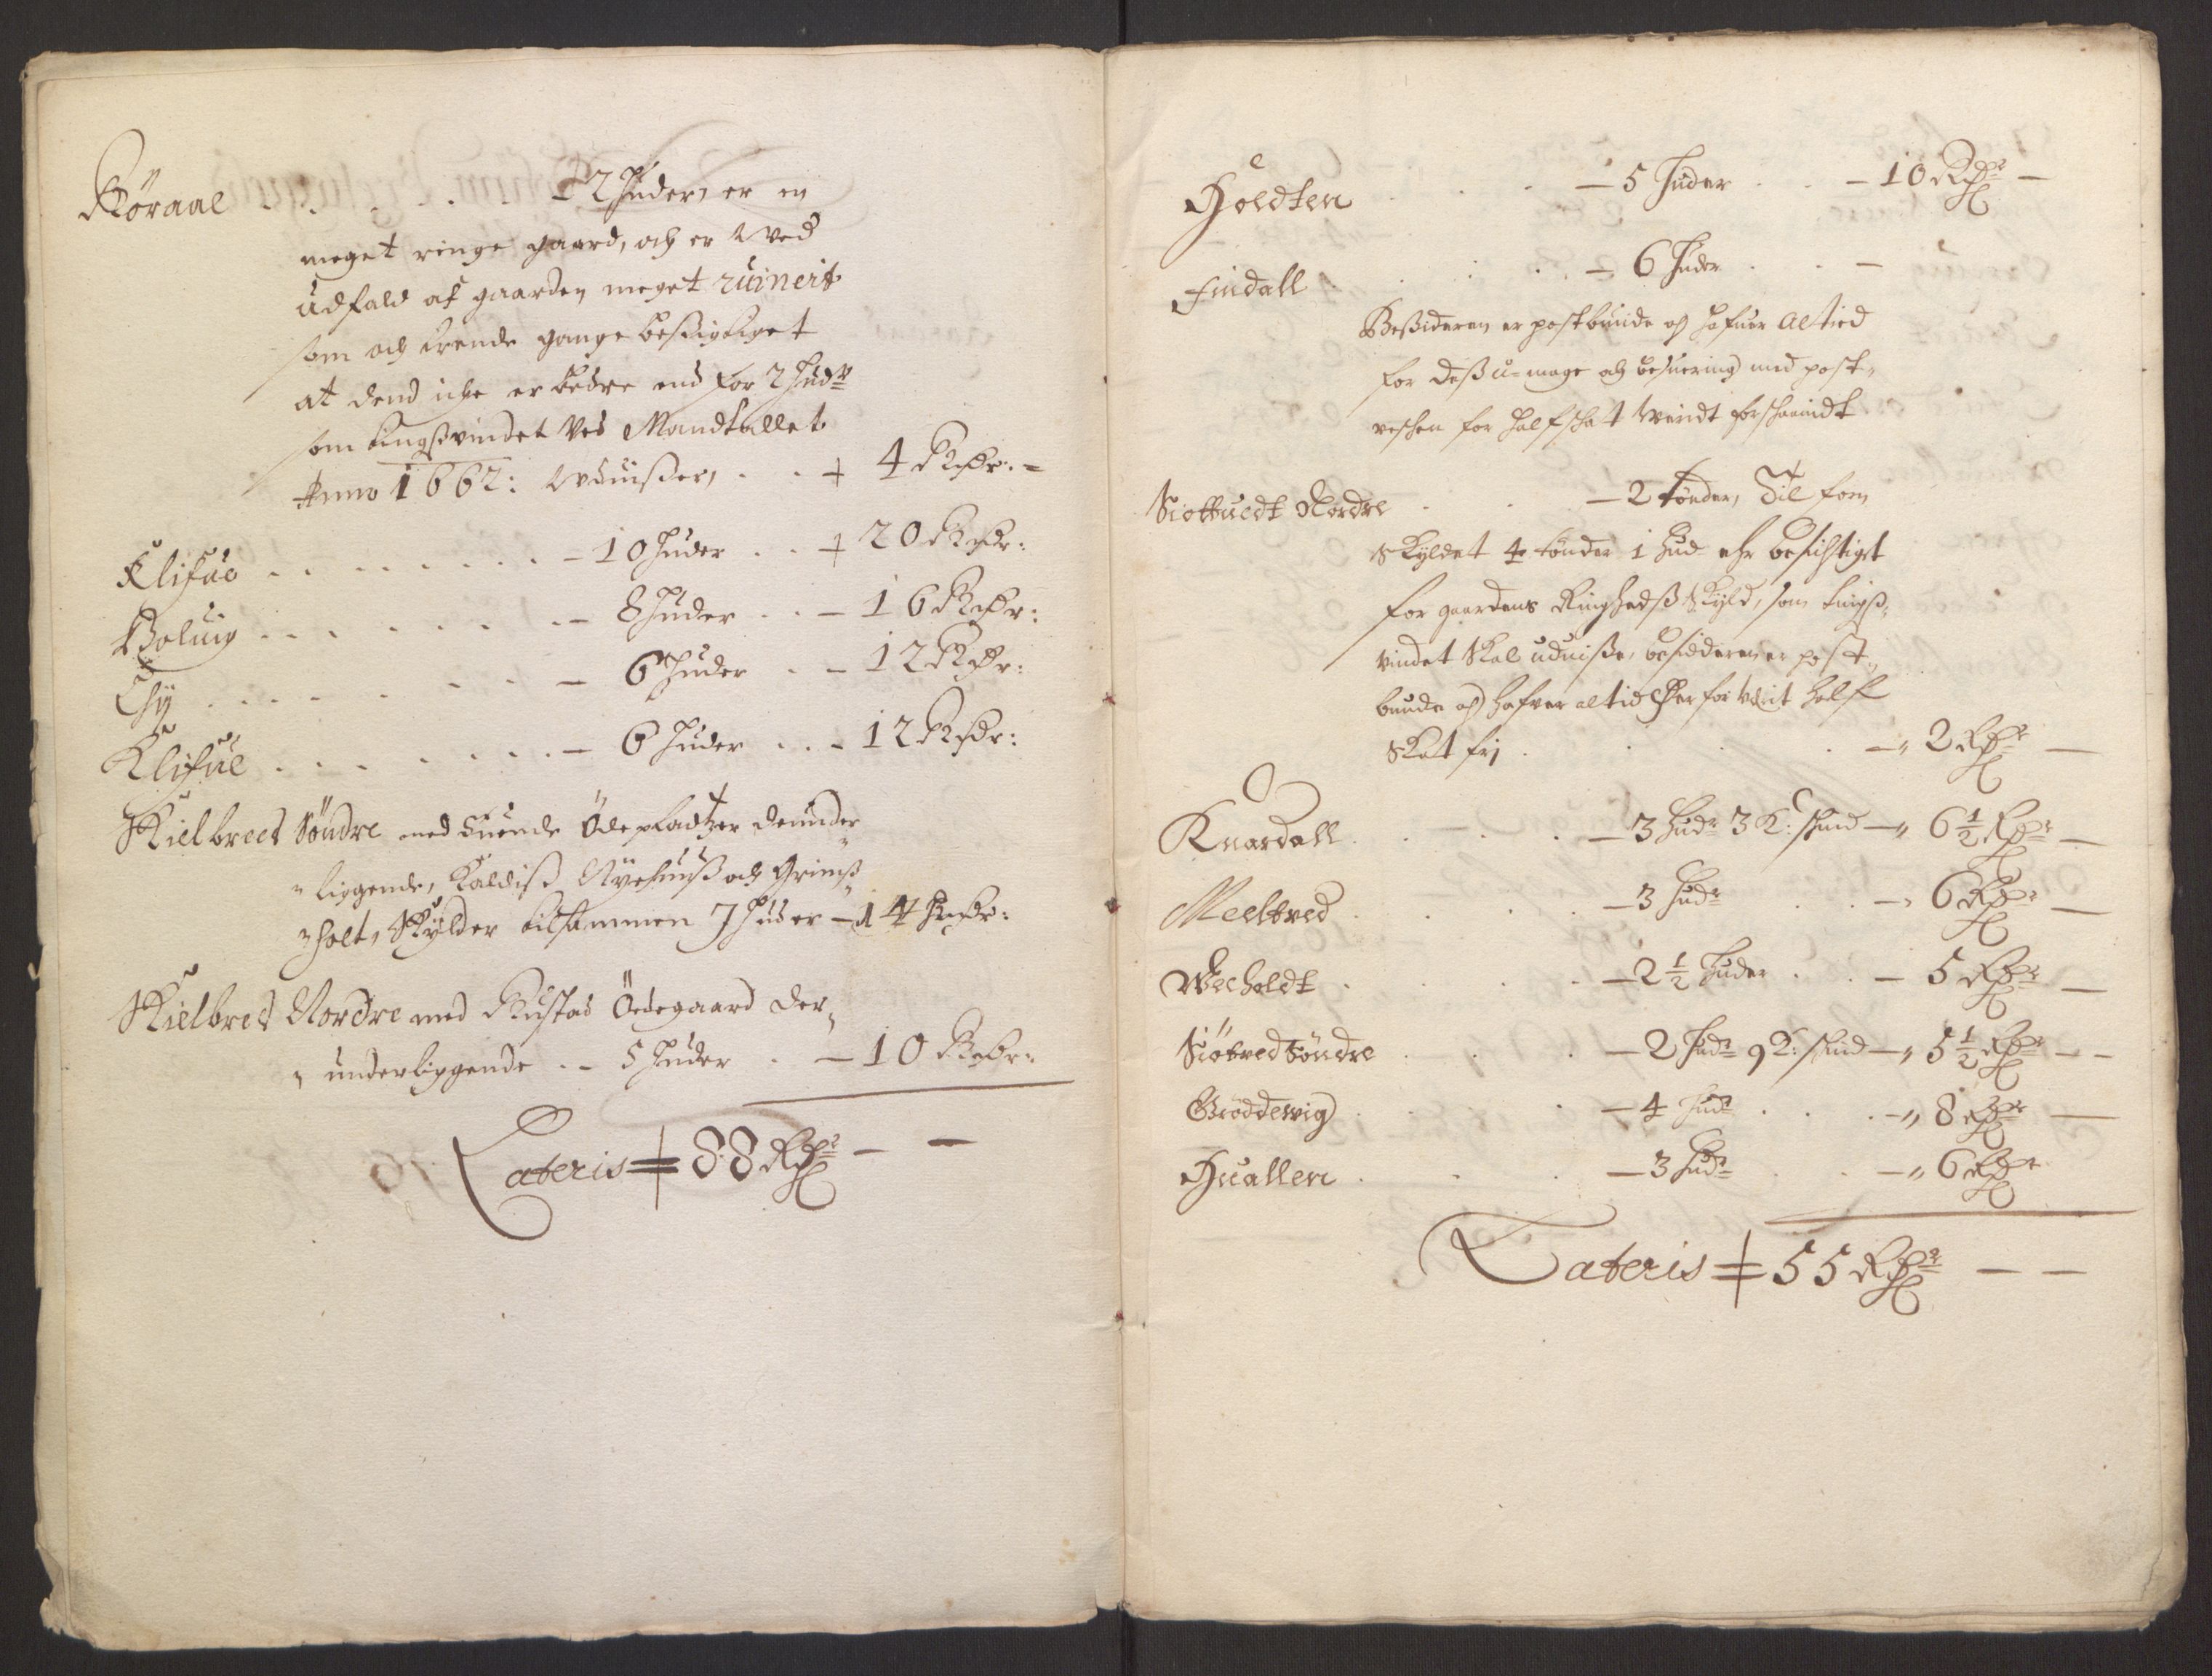 Röraae . . . . . 2 huder, er en
meget ringe gaard, och er ved
udfald af gaarden meget ruinert
som och trende gange besigtiget
at dend iche er bedre end for 2 hudr
som tingsvindet ved Mandtallet
Anno 1662: udviser, . . 4 Rdr: -
Klifue . . . . . . . - 10 huder . . 20 Rdr:
Boluig . . . . . . - 8 huder . . - 16 Rdr:
Thy . . . . . . - 6 huder . - 12 Rdr:
Klifue . . . . . . . - 6 huder . . - 12 Rdr:
Kielbred Söndre med Öde pladtzer derunder
liggende, Kaldis Nyehuus och Grims
holt, Skylder tilsammen 7 huder - 14 Rdr:
Kielbred Nordre med Rustad Ödegaard der
underliggende . . 5 huder . - 10 Rdr:
Lateris = 88 Rdr - -
Holdten . . . - 5 huder . . - 10 Rdr -
Findall . . . . - 6 huder . . -
Besideren er postbunde och hafuer altied
for des u-mage och besuering med post-
for half schat weridt forschaanidt
Siøttuedt Nordre . . . - 2 tønder, Til forn
Skyldet 4 tønder 1 hud ehr besichtiget
for gaardens Ringheds Skyld, som tings-
vindet Skal uduise, besidderen er post-
bunde och hafver altid herfor verit half
Skat frj . . . . - 2 Rdr -
Knardall . . . - 3 hudr 3 K: skind - 6 1/2 Rdr -
Meelbred . . . . - 3 hudr . . - 6 Rdr -
Wecholdt . . . . - 2 1/2 huder . . - 5 Rdr -
Siötvedt Söndre . . . - 2 hudr 9 K: skind - 5 1/2 Rdr - -
Grøddewig . . . . - 4 hudr . . . - 8 Rdr -
Huallen . . . - 3 hudr . . - 6 Rdr
Lateris = 55 Rdr - -